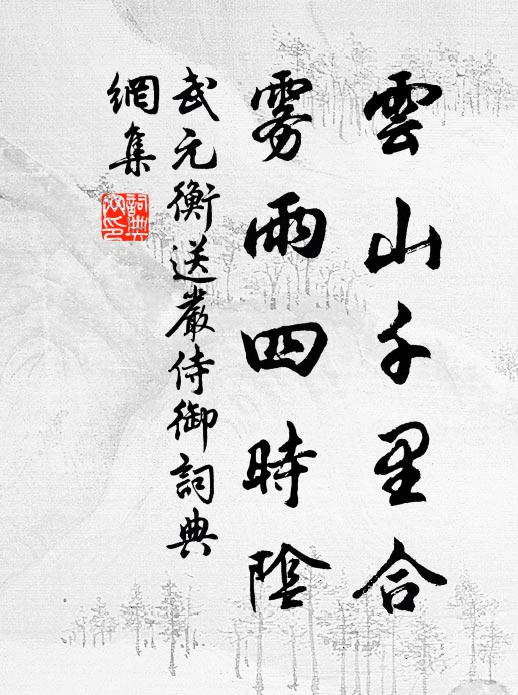 雲山千里合
霧雨四時陰
武元衡送嚴侍御詞典
網集
詞典網印